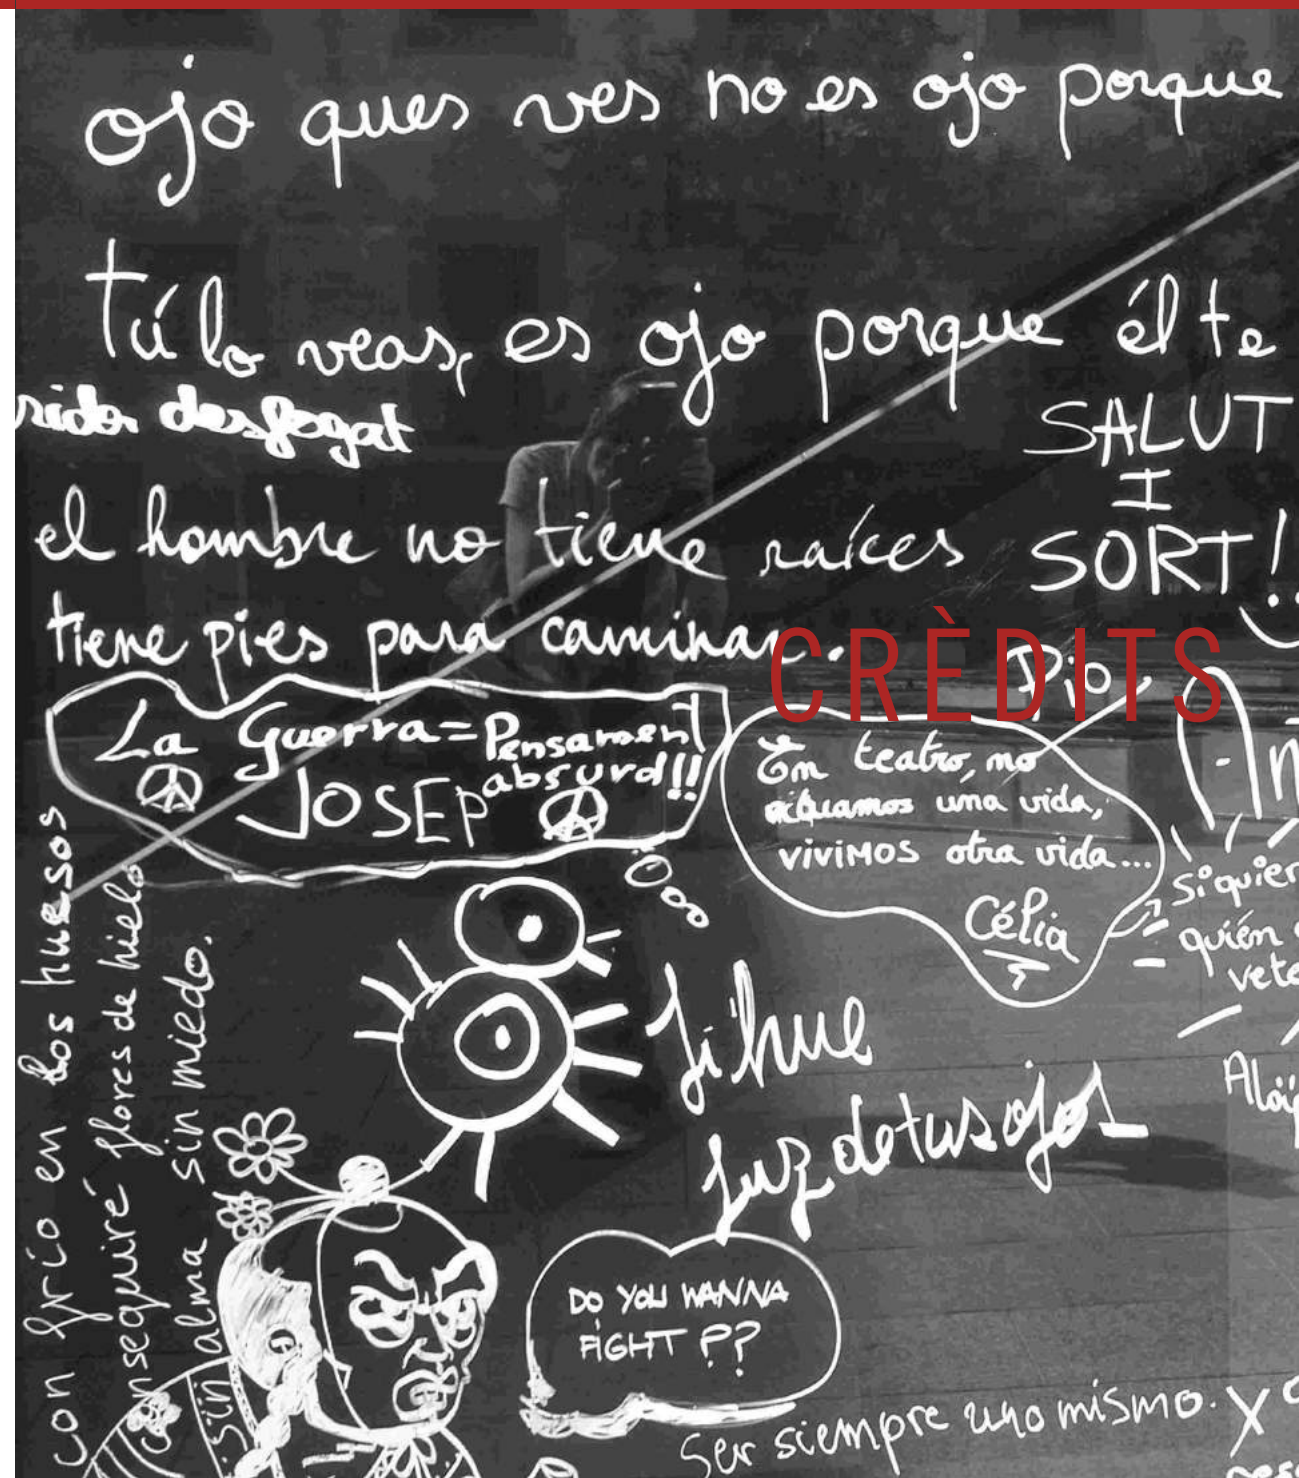 ojo ques ves no es ojo porque
tú lo veas, es ojo porque él te
desfogat
SALUT
I
SORT!
el hombre no tiene raíces
tiene pies para caminar.
CRÈDITS
Pio
La Guerra = Pensament
absurd!!
JOSEP
Em teatro, no
una vida,
vivimos otra vida...
Célia
si quier
quién
vete
luz de tus ojos
con frío en los huesos
conseguiré flores de hielo
sin alma sin miedo.
DO YOU WANNA
FIGHT ??
Ser siempre uno mismo.